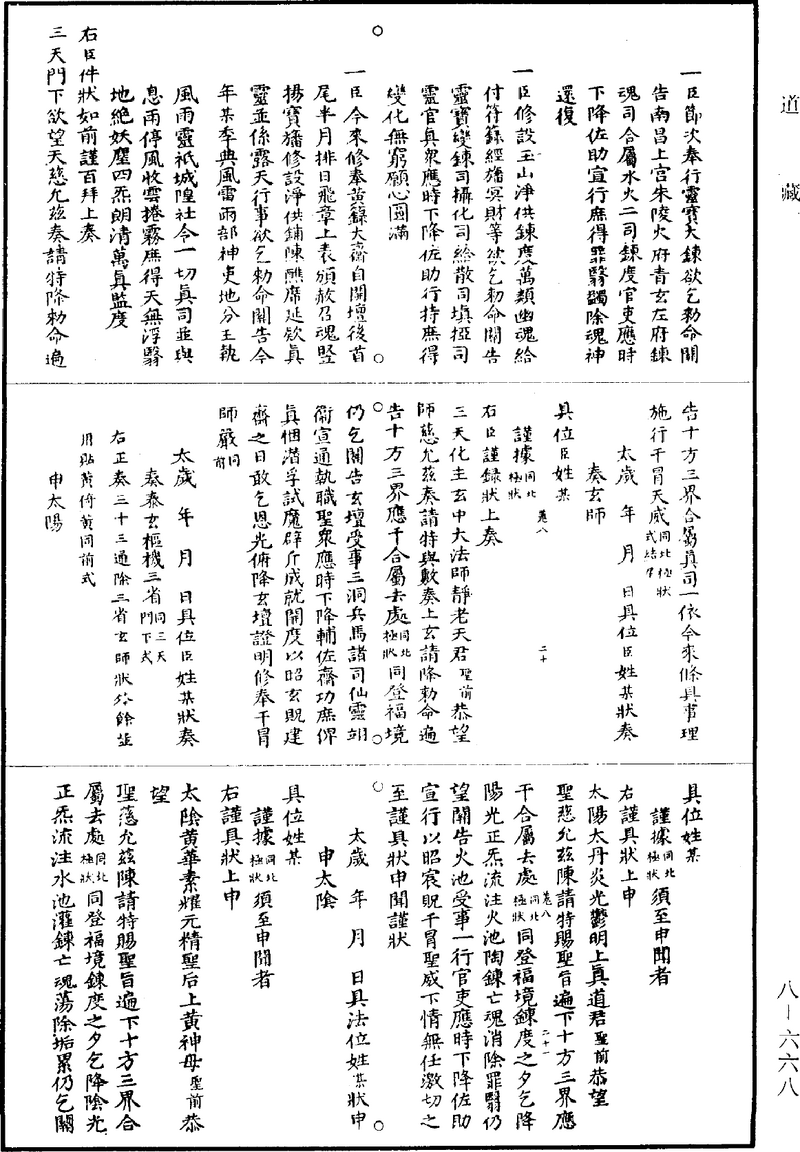 道藏
一臣節次奉行靈寶大鍊欲乞勅命關
告南昌上宮朱陵火府青玄左府鍊
魂司合屬水火二司鍊度官吏應時
下降佐助宣行庶得罪翳蠲除魂神
還復
一臣修設玉山淨供鍊度萬類幽魂給
付符籙經旛冥財等欲乞勅命關告
靈寶變鍊司攝化司給散司塡掗司
靈官眞衆應時下降佐助行持庶得
變化無窮願心圓滿
一臣今來修奏黃籙大齋自開壇後首
尾半月排日飛章上表頒赦召魂竪
揚寶旛修設淨供鋪陳醮席延欵眞
靈並係露天行事欲乞勅命關告今
年某季典風雷雨部神吏地分王執
風雨靈祇城隍社令一切眞司並與
息雨停風收雲捲霧庶得天無浮翳
地絶妖塵四炁朗清萬眞監度
右臣件狀如前謹百拜上奏
三天門下欲望天慈允兹奏請特降勅命遍
告十方三界合屬眞司一依今來條具事理
施行干冒天威同北極狀式結尾
太歲 年 月 日具位臣姓某狀奏
奏玄師
具位臣姓某
謹據同北極狀
卷八 二十
右臣謹録狀上奏
三天化主玄中大法師靜老天君聖前恭望
師慈允兹奏請特與敷奏上玄請降勅命遍
告十方三界應干合屬去處同北極狀同登福境
仍乞關告玄壇受事三洞兵馬諸司仙靈翊
衞宣通執職聖衆應時下降輔佐齋功庶俾
眞悃潛孚試魔辟斥成就開度以昭玄貺建
齋之日敢乞恩光俯降玄壇證明修奉干冒
師嚴同前
太歲 年 月 日具位臣姓某狀奏
奏泰玄樞機三省同三天門下式
右正奏三十三通除三省玄師狀外餘並
用貼黃倚黃同前式
申太陽
具位姓某
謹據同北極狀須至申聞者
右謹具狀上申
太陽太丹炎光鬱明上眞道君聖前恭望
聖慈允兹陳請特賜聖旨遍下十方三界應
干合屬去處同北極狀同登福境鍊度之夕乞降
卷八 二十一
陽光正炁流注火池陶鍊亡魂消除罪翳仍
望關告火池受事一行官吏應時下降佐助
宣行以昭宸貺干冒聖威下情無任激切之
至謹具狀申聞謹狀
太歲 年 月 日具法位姓某狀申
申太陰
具位姓某
謹據同北極狀須至申聞者
右謹具狀上申
太陰黃華素耀元精聖后上黃神母聖前恭
望
聖慈允兹陳請特賜聖旨遍下十方三界合
屬去處同北極狀同登福境鍊度之夕乞降陰光
正炁流注水池灌鍊亡魂蕩除垢累仍乞關
八－六六八